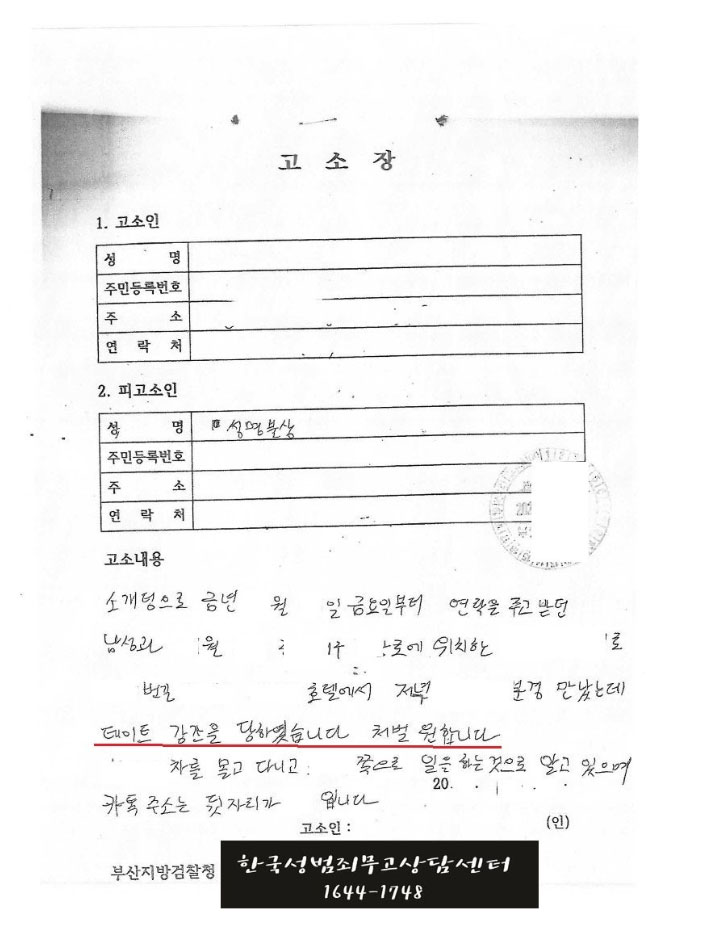 고 소 장
1. 고소인
성 명
주민등록번호
주 소
연 락 처
2. 피고소인
성 명 성명불상
주민등록번호
주 소
연 락 처
고소내용
소개팅으로 금년 월 일 금요일부터 연락을 주고 받던
남성과 월 로에 위치한 로
번길 호텔에서 저녁 분경 만났는데
데이트 강간을 당하였습니다 처벌 원합니다
차를 몰고 다니고 쪽으로 일을 하는것으로 알고 있으며
카톡 주소는 뒷자리가 입니다
20. . .
고소인 : (인)
부산지방검찰청
한국성범죄무고상담센터
1644-1748